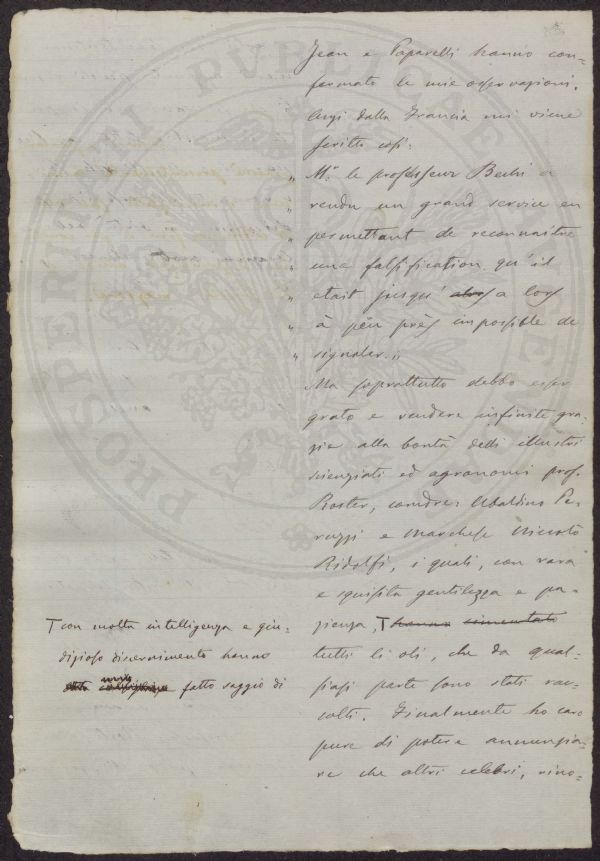 Jean e Paparelli hanno con=
fermato le mie osservazioni.
Anzi dalla Francia mi viene
scritto così:
„ Mr. le professeur Bechi a
„ rendu un grand service en
„ permettant de reconnaitre
„ une falsification, qu'il
„ etait jusqu' alors a lors
„ à peu près impossible de
„ signaler.„
Ma soprattutto debbo esser
grato e rendere infinite gra=
zie alla bontà delli illustri
scienziati ed agronomi prof.
Roster, comdre: Ubaldino Pe=
ruzzi e Marchese Niccolò
Ridolfi, i quali, con rara
e squisita gentilezza e pa=
zienza, T hanno cimentato
tutti li oli, che da qual=
siasi parte sono stati rac=
colti. Finalmente ho caro
pure di potere annunzia=
re che altri celebri, rino=
T con molta intelligenza e giu=
dizioso discernimento hanno
fatto saggio di
PROSPERITATI PVBLICAE